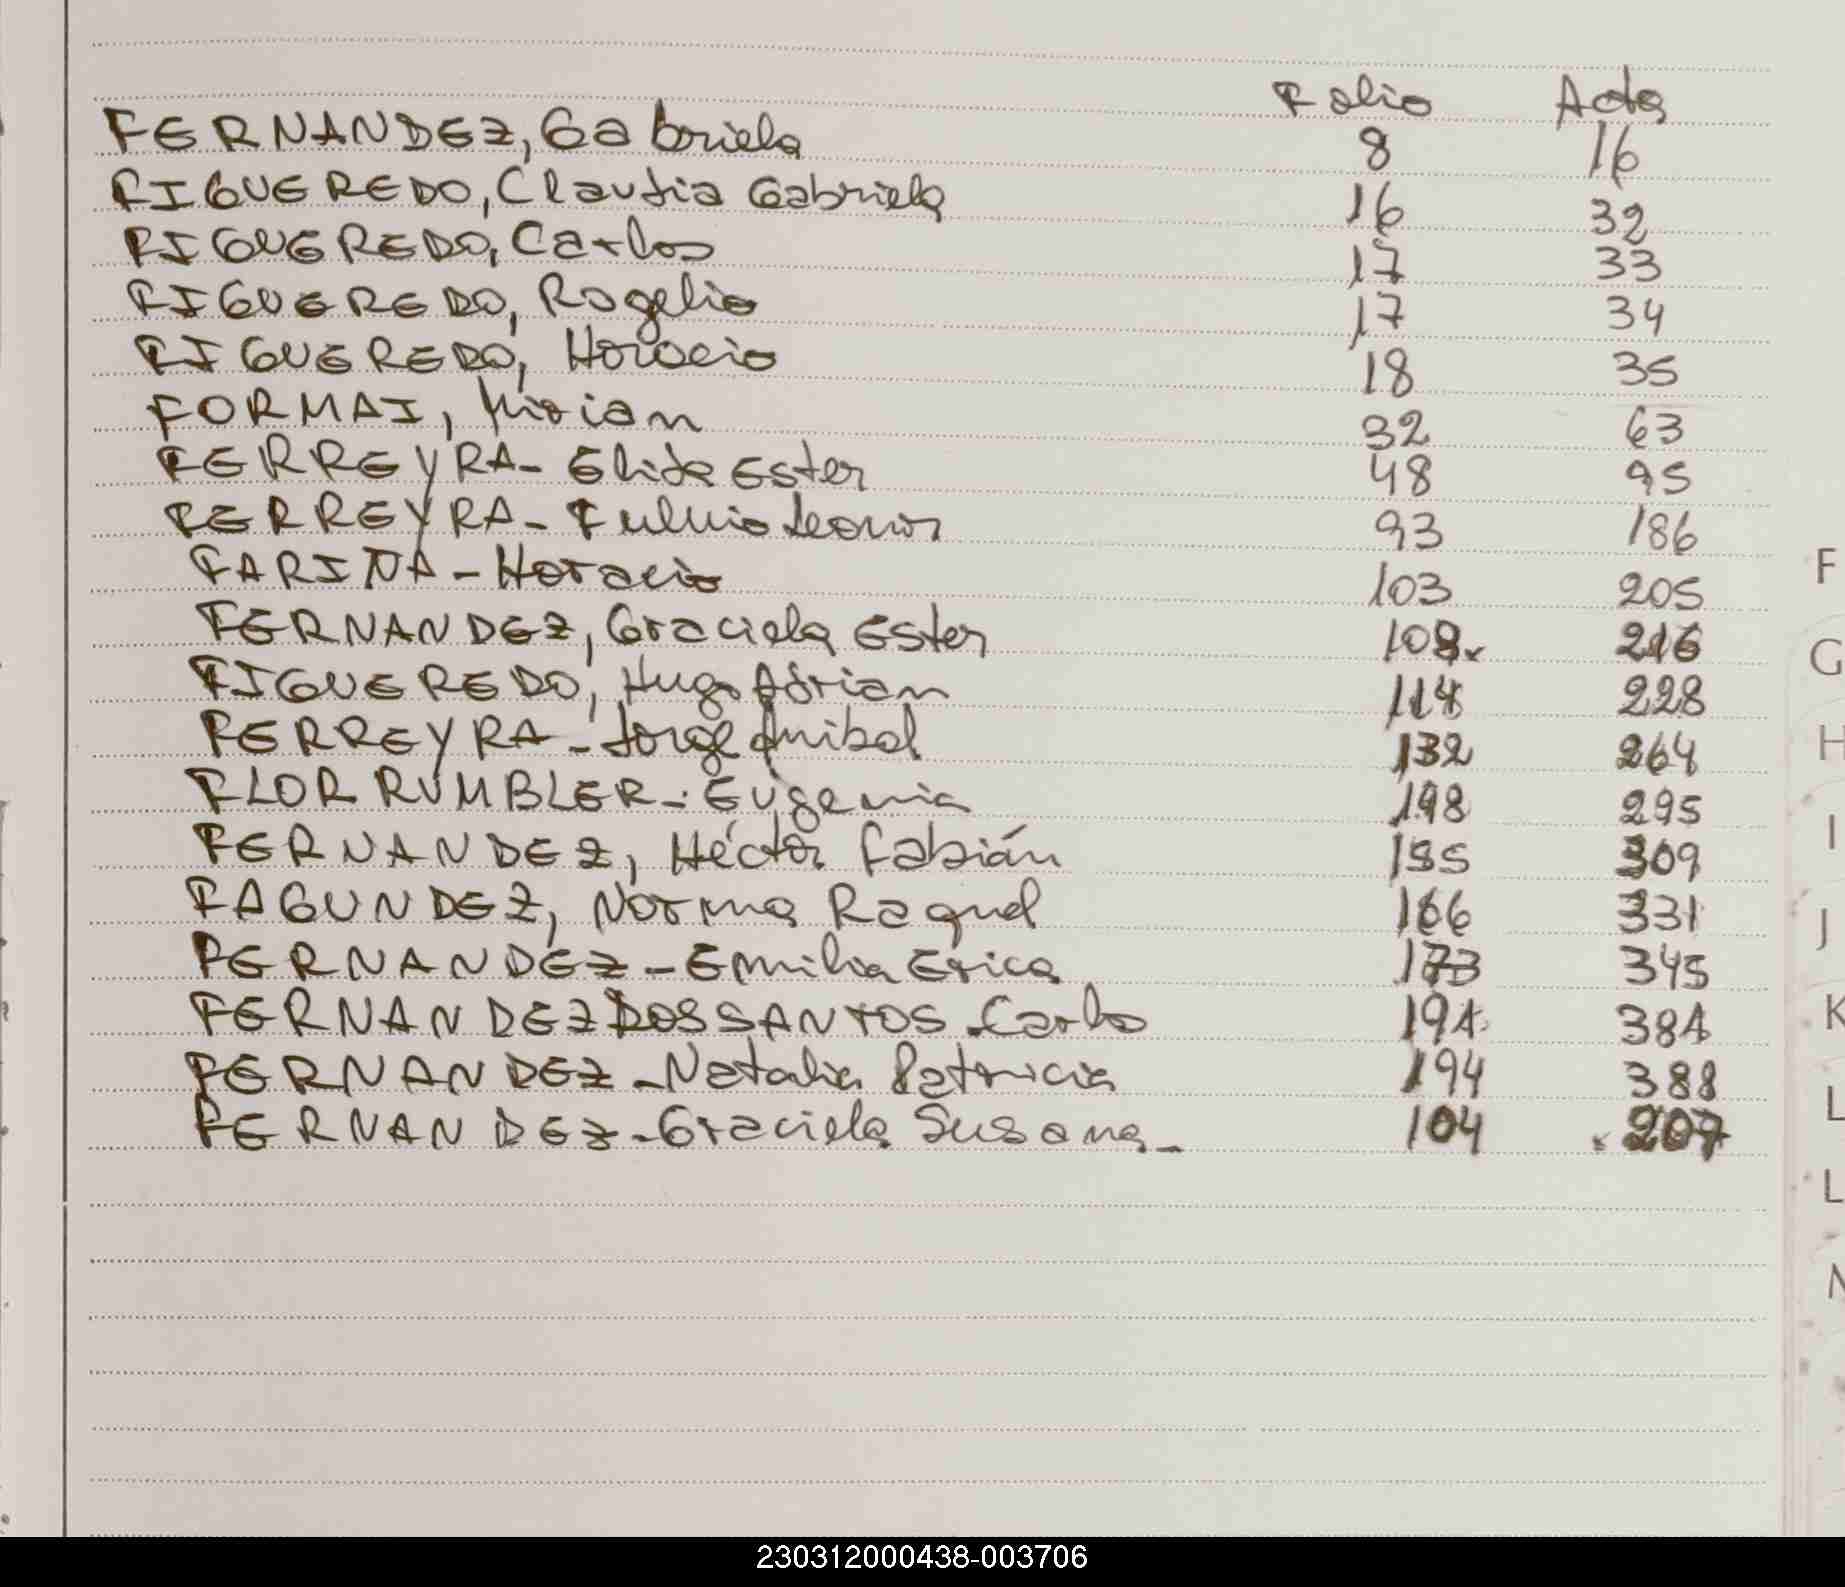 Folio Acta
FERNANDEZ, Gabriela 8 16
FIGUEREDO, Claudia Gabriela 16 32
FIGUEREDO, Carlos 17 33
FIGUEREDO, Rogelio 17 34
FIGUEREDO, Horacio 18 35
FORMAI, Mirian 32 63
FERREYRA - Elida Ester 48 95
FERREYRA - Fulvio Leonor 93 186
FARIÑA - Horacio 103 205
FERNANDEZ, Graciela Ester 108 216
FIGUEREDO, Hugo Adrian 114 228
FERREYRA - Jorge Anibal 132 264
FLOR RUMBLER - Eugenia 148 295
FERNANDEZ, Héctor Fabián 155 309
FAGUNDEZ, Norma Raquel 166 331
FERNANDEZ - Emilia Erica 173 345
FERNANDEZ DOS SANTOS - Carlos 191 381
FERNANDEZ - Natalia Patricia 194 388
FERNANDEZ - Graciela Susana - 104 207
F
G
H
I
J
K
L
L
N
230312000438-003706